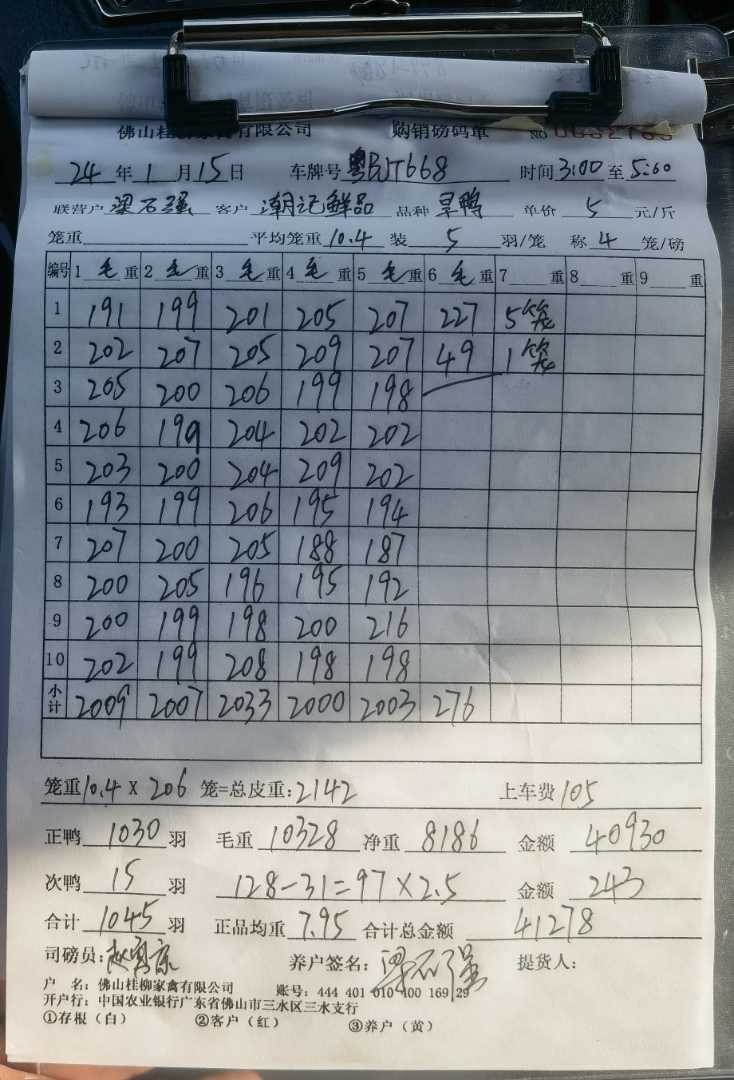 佛山桂柳家禽有限公司 购销磅码单 NO
24年1月15日 车牌号 668 时间3:00至5:00
联营户 梁石强 客户 潮记鲜品 品种 旱鸭 单价 5 元/斤
笼重 平均笼重10.4 装 5 羽/笼 称 4 笼/磅
编号 1 毛 重 2 毛 重 3 毛 重 4 毛 重 5 毛 重 6 毛 重 7 重 8 重 9 重
1 191 199 201 205 207 227 5笼
2 202 207 205 209 207 49 1笼
3 205 200 206 199 198
4 206 199 204 202 202
5 203 200 204 209 202
6 193 199 206 195 194
7 207 200 205 188 187
8 200 205 196 195 192
9 200 199 198 200 216
10 202 199 208 198 198
小计 2009 2007 2033 2000 2003 276
笼重10.4 × 206 笼=总皮重:2142 上车费 105
正鸭 1030 羽 毛重 10328 净重 8186 金额 40930
次鸭 15 羽 128-31=97×2.5 金额 243
合计 1045 羽 正品均重 7.95 合计总金额 41278
司磅员: 养户签名: 梁石强 提货人:
户 名: 佛山桂柳家禽有限公司 账号: 444 401 010 400 169 29
开户行: 中国农业银行广东省佛山市三水区三水支行
①存根（白） ②客户（红） ③养户（黄）